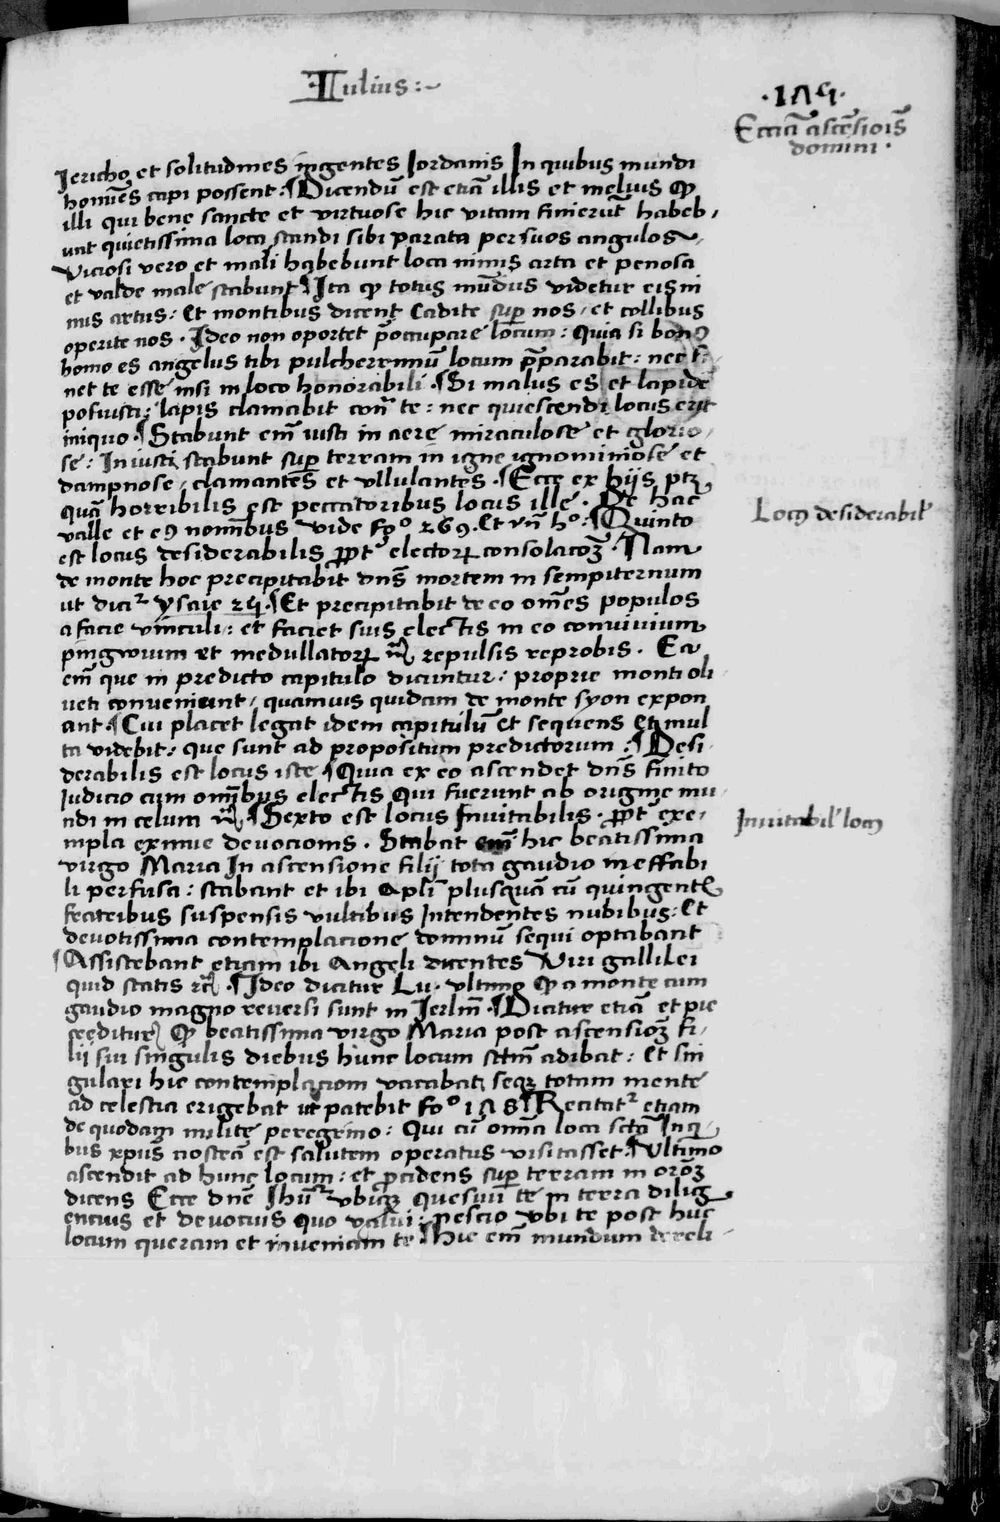 Iulius:~
·175·
Eccīa ascēsioīs
domini·
Jericho et solitudines ingentes Jordanis In quibus mundi
homīes capi possent: ¶Dicendū est eciā illis et melius qp
illi qui bene sancte et virtuose hic vitam finierūt habeb,
unt quietissima loca standi sibi parata per suos angulos
Viciosi vero et mali habebunt loca nimis arta et penosa
et valde male stabunt ¶Ita qp totus mūdus videtur eis ni
mis artus: Et montibus dicent Cadite sup nos, et collibus
operite nos. Ideo non oportet p̄occupare locum: Quia si bon9
homo es angelus tibi pulcherrimū locum p̄parabit: nec
net te esse nisi in loco honorabili. ¶Si malus es et lapidē
posuisti: lapis clamabit con̄ te: nec quiescendi locus erit
iniquo. ¶Stabunt em̄ iusti in aere miraculose et glorio,
se: Iniusti stabunt sup terram in igne ignominiose et
dampnose, clamantes et ullulantes. ¶Ecce ex hijs ptz
quā horribilis est peccatoribus locus ille. De hac
valle et e9 nomībus vide fo 269. Et vn̄ ho: ¶Quinto
est locus desiderabilis ppt electorꝝ consolacoꝫ. Nam
de monte hoc precipitabit dn̄s mortem in sempiternum
ut dicir ysaie 25. ¶Et precipitabit de eo om̄es populos
a facie vinculi: et faciet suis electis in eo convivium
pingwium et medullatorꝝ repulsis reprobis. Ea
em̄ que in predicto capitulo dicuntur: proprie monti oli
veti conveniunt, quamvis quidam de monte syon expon
ant. ¶Cui placet legat idem capitulū et sequens et mul
ta videbit: que sunt ad propositum predictorum: ¶Desi,
derabilis est locus iste ¶Quia ex eo ascendet dn̄s finito
Judicio cum omībus electis Qui fuerunt ab origine mu
ndi in celum ¶Sexto est locus Invitabilis. ppt exe,
mpla eximie devocionis. Stabat em̄ hic beatissima
virgo Maria In ascensione filij tota gaudio ineffabi
li perfusa: stabant et ibi apli plusquā cū quingentꝭ
fratribus suspensis vultibus Intendentes nubibus: Et
devotissima contemplacione dominū sequi optabant
¶Assistebant etiam ibi Angeli dicentes Viri gallilei
quid statis rc. ¶Ideo dicitur Lu. ultimo qp a monte cum
gaudio magno reversi sunt in Jerlm̄. ¶Dicitur etiā et pie
creditur qp beatissima virgo Maria post ascensioꝫ fi,
lij sui singulis diebus hunc locum sctm̄ adibat: Et sin
gulari hic contemplaciom vacabat, seqꝫ totam mente
ad celestia erigebat ut patebit fo 178 ¶Recitatr etiam
de quodam milite peregrino: Qui cū om̄ia loca sctā Inq
bus xpūs nostrā est salutem operatus visitasset. ¶Ultimo
ascendit ad hunc locum: et pcidens sup terram in oroꝫ
dicens Ecce dn̄e Ihū ubiqꝫ quesivi te in terra dilig
encius et devocius quo valui: nescio ubi te post hūc
locum queram et inveniam te ¶Hic em̄ mundum dereli,
Loc9 desiderabil
Invitabil loc9